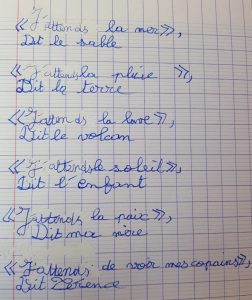 «J'attends la mer»,
Dit le sable
«J'attends la pluie »,
Dit la terre
«J'attends la lave»,
Dit le volcan
«J'attends le soleil»,
Dit l'enfant
«J'attends la paix»,
Dit
«J'attends de voir mes copains»,
Dit